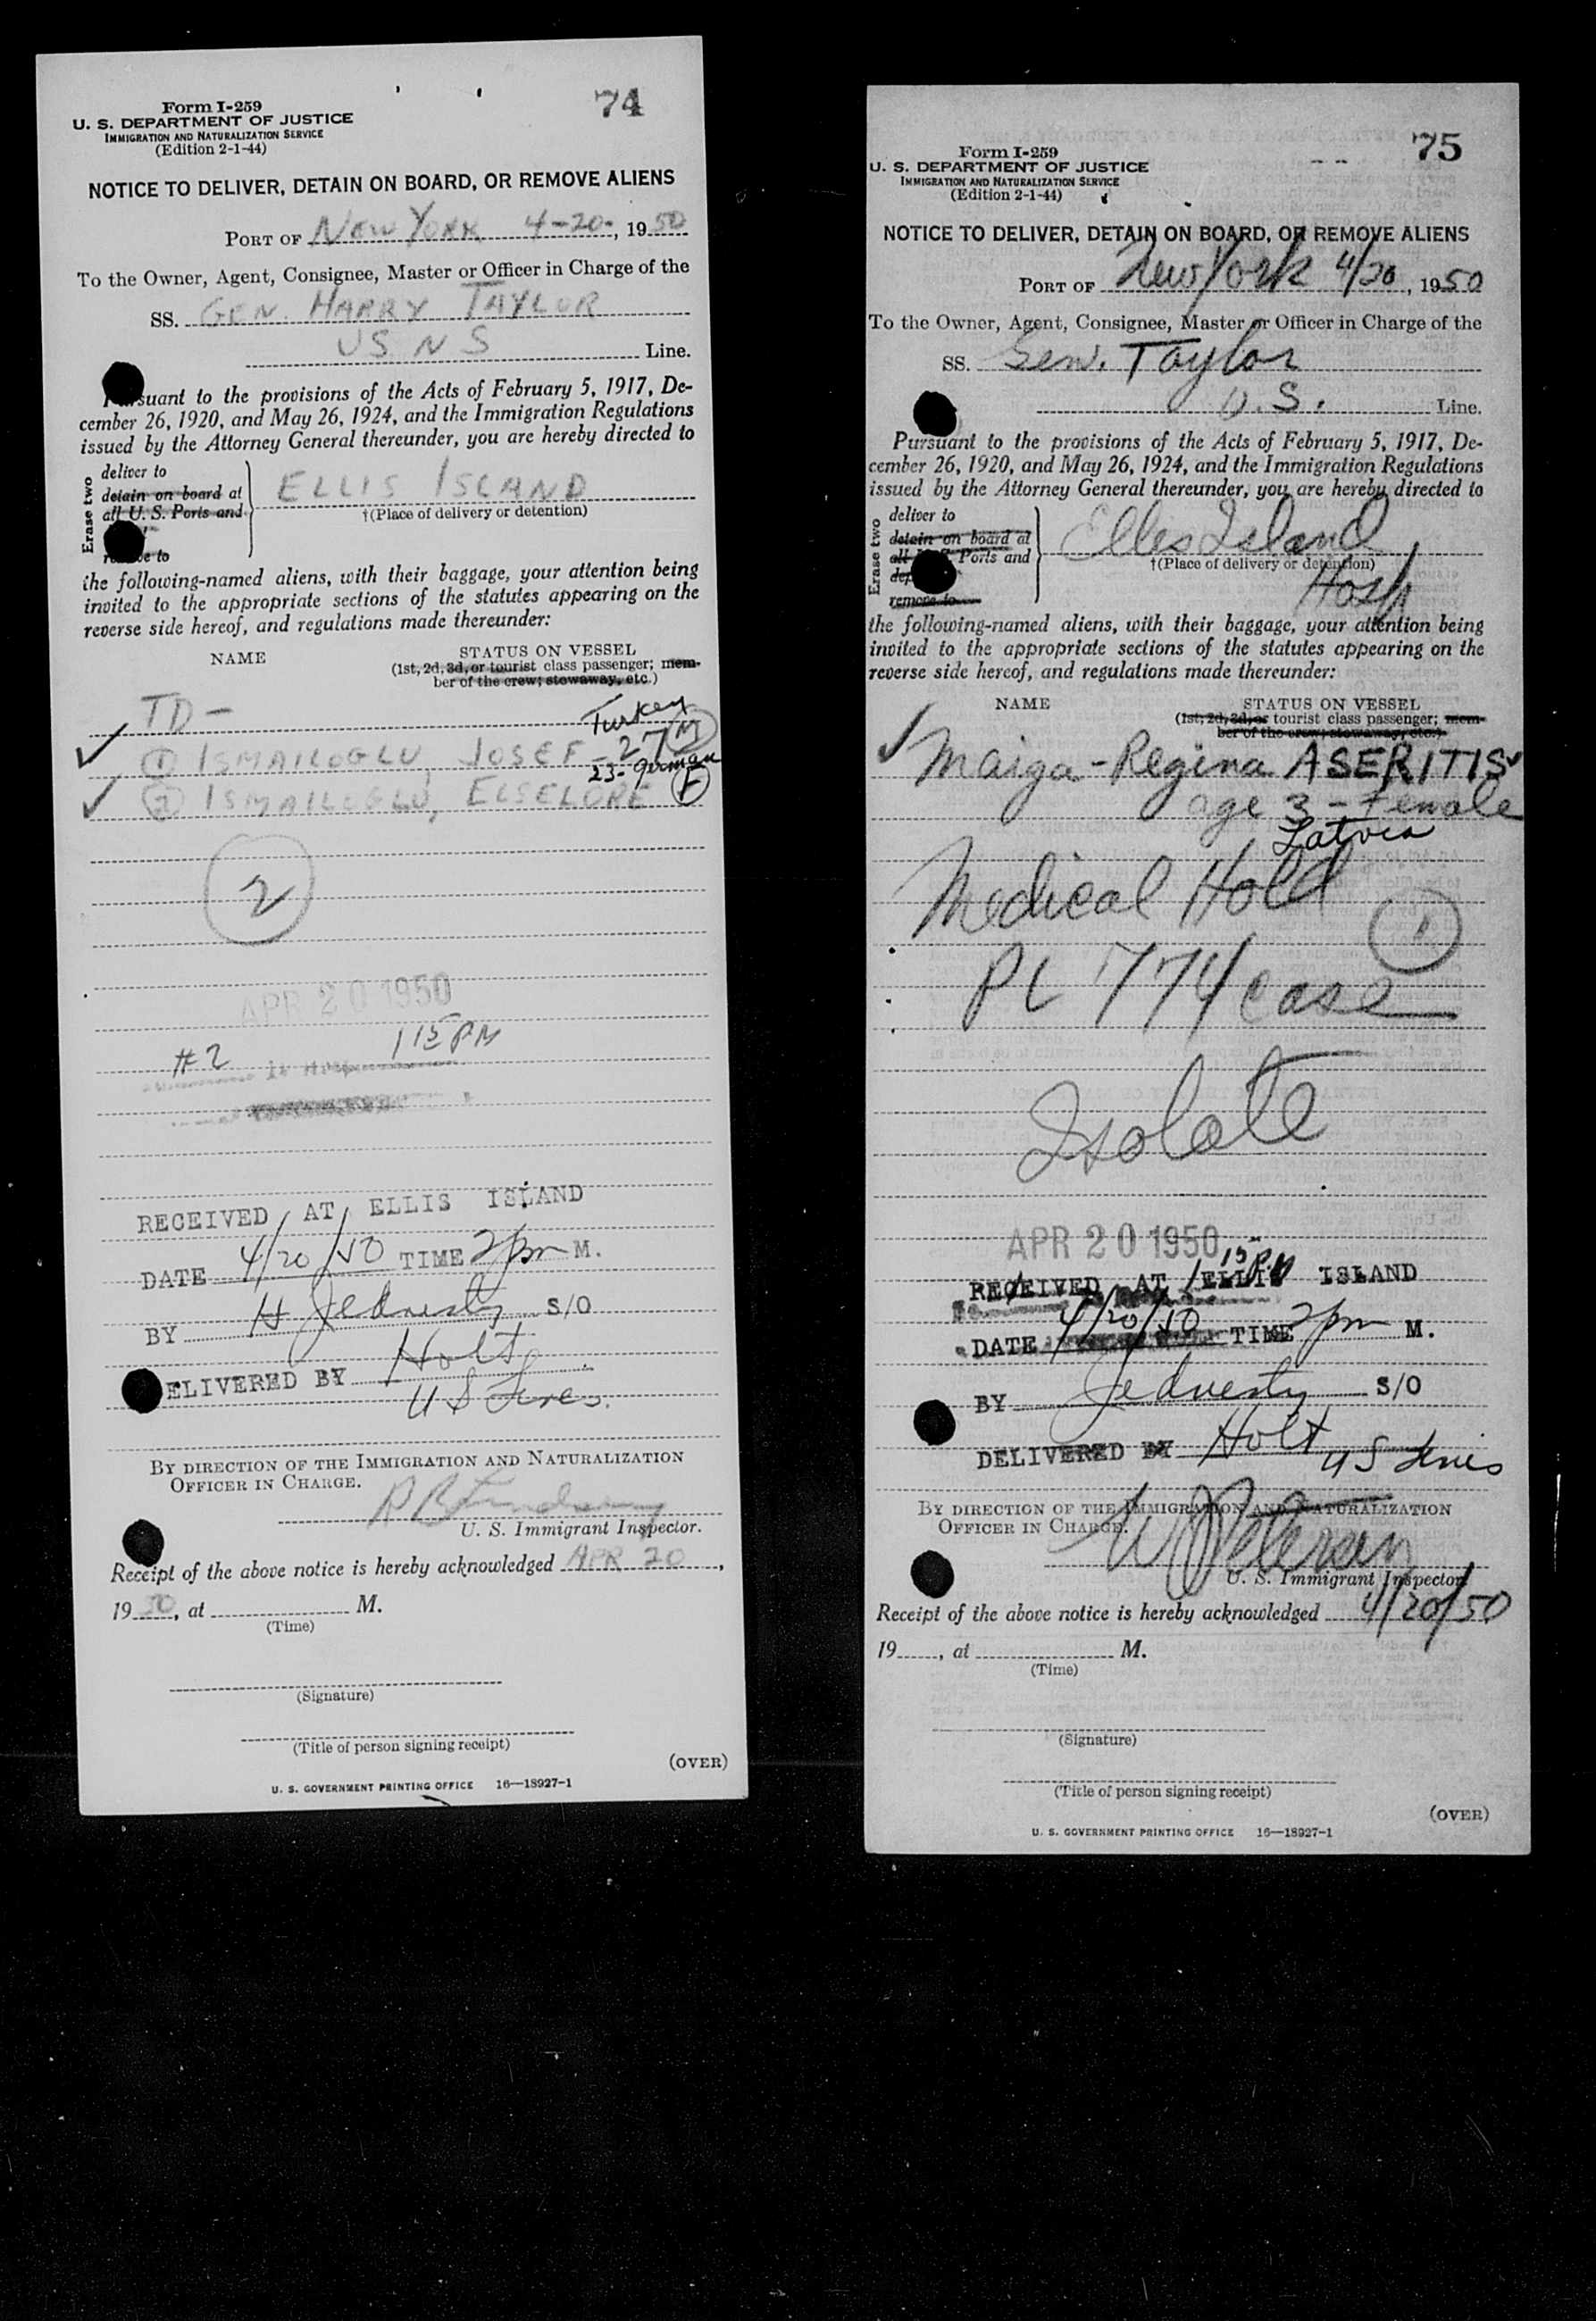 74
Form I-259
U. S. DEPARTMENT OF JUSTICE
IMMIGRATION AND NATURALIZATION SERVICE
(Edition 2-1-44)
NOTICE TO DELIVER, DETAIN ON BOARD, OR REMOVE ALIENS
PORT OF NEW YORK 4-20-, 1950
To the Owner, Agent, Consignee, Master or Officer in Charge of the
SS. GEN. HARRY TAYLOR
US N S Line.
Pursuant to the provisions of the Acts of February 5, 1917, De-
cember 26, 1920, and May 26, 1924, and the Immigration Regulations
issued by the Attorney General thereunder, you are hereby directed to
Erase two
deliver to
detain on board at
all U. S. Ports and
remove to
ELLIS ISLAND
†(Place of delivery or detention)
the following-named aliens, with their baggage, your attention being
invited to the appropriate sections of the statutes appearing on the
reverse side hereof, and regulations made thereunder:
NAME
STATUS ON VESSEL
(1st, 2d, 3d, or tourist class passenger; mem-
ber of the crew; stowaway, etc.)
TD -
Turkey
1 ISMAILOGLU, JOSEF - 27 M
23- German
2 ISMAILOGLU, ELSELORE F
2
APR 20 1950
#2 1 15 PM
RECEIVED AT ELLIS ISLAND
DATE 4/20/50 TIME 2pm M.
BY H Jednesty S/O
DELIVERED BY Holt
U S Lines.
BY DIRECTION OF THE IMMIGRATION AND NATURALIZATION
OFFICER IN CHARGE.
U. S. Immigrant Inspector.
Receipt of the above notice is hereby acknowledged APR 20,
1950, at M.
(Time)
(Signature)
(Title of person signing receipt)
(OVER)
U. S. GOVERNMENT PRINTING OFFICE 16—18927-1
75
Form I-259
U. S. DEPARTMENT OF JUSTICE
IMMIGRATION AND NATURALIZATION SERVICE
(Edition 2-1-44)
NOTICE TO DELIVER, DETAIN ON BOARD, OR REMOVE ALIENS
PORT OF New York 4/20, 1950
To the Owner, Agent, Consignee, Master or Officer in Charge of the
SS. Gen. Taylor
U.S. Line.
Pursuant to the provisions of the Acts of February 5, 1917, De-
cember 26, 1920, and May 26, 1924, and the Immigration Regulations
issued by the Attorney General thereunder, you are hereby directed to
Erase two
deliver to
detain on board at
all U. S. Ports and
remove to
Elles Island
†(Place of delivery or detention)
Hosp
the following-named aliens, with their baggage, your attention being
invited to the appropriate sections of the statutes appearing on the
reverse side hereof, and regulations made thereunder:
NAME
STATUS ON VESSEL
(1st, 2d, 3d, or tourist class passenger; mem-
ber of the crew; stowaway, etc.)
Maiga-Regina ASERITIS
age 3 - Female
Latvia
Medical Hold
1
PL 774 case
Isolate
APR 20 1950
1 15 P.M
RECEIVED AT ELLIS ISLAND
DATE 4/20/50 TIME 2pm M.
BY Jednesty S/O
DELIVERED BY Holt U S Lines
BY DIRECTION OF THE IMMIGRATION AND NATURALIZATION
OFFICER IN CHARGE.
U. S. Immigrant Inspector.
Receipt of the above notice is hereby acknowledged 4/20/50
19, at M.
(Time)
(Signature)
(Title of person signing receipt)
(OVER)
U. S. GOVERNMENT PRINTING OFFICE 16—18927-1